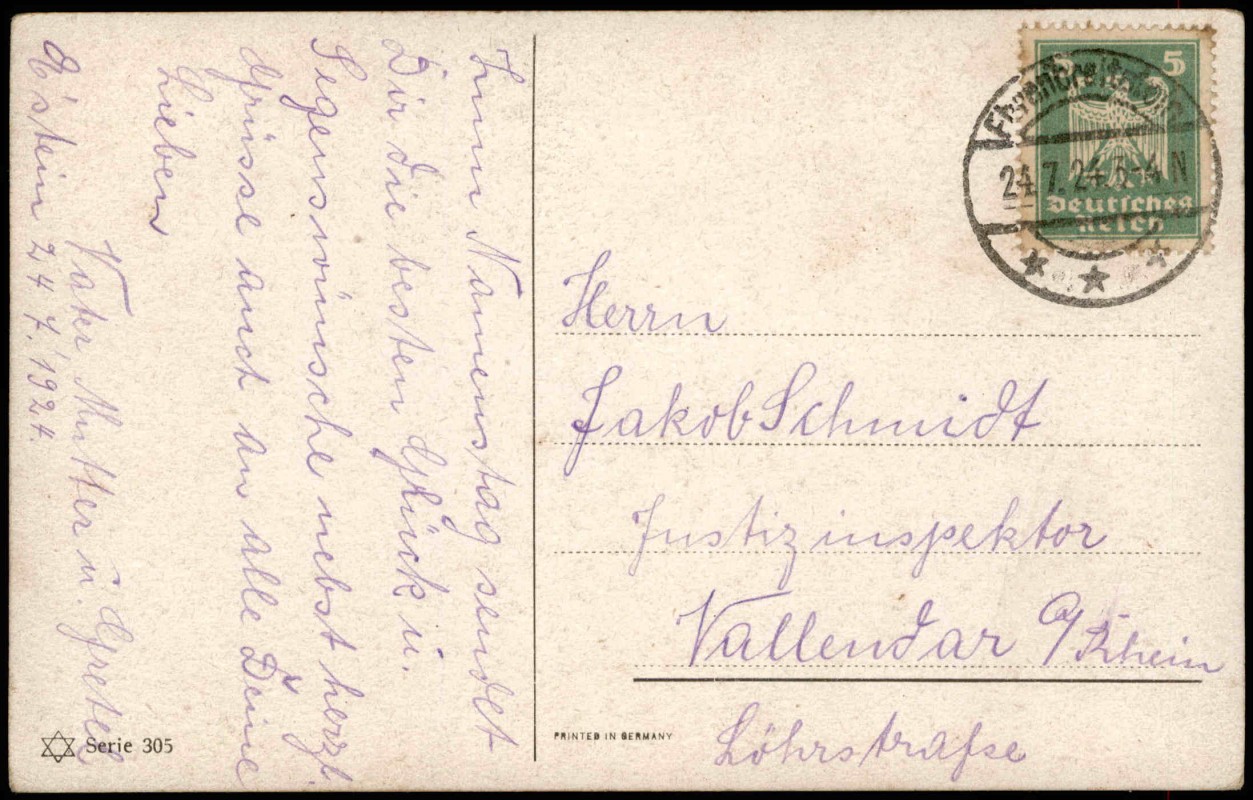 Zum Namenstag sendet
Dir die besten Glück u.
Segenswünsche nebst herzl.
Grüsse auch an alle Deine
Lieben
Vater Mutter u. Gretel
E'stein 24.7.'1924.
5 5
24.7.24.3-4 N
Deutsches
Reich
Herrn
Jakob Schmidt
Justizinspektor
Vallendar a/Rhein
Löhrstraße
PRINTED IN GERMANY
Serie 305